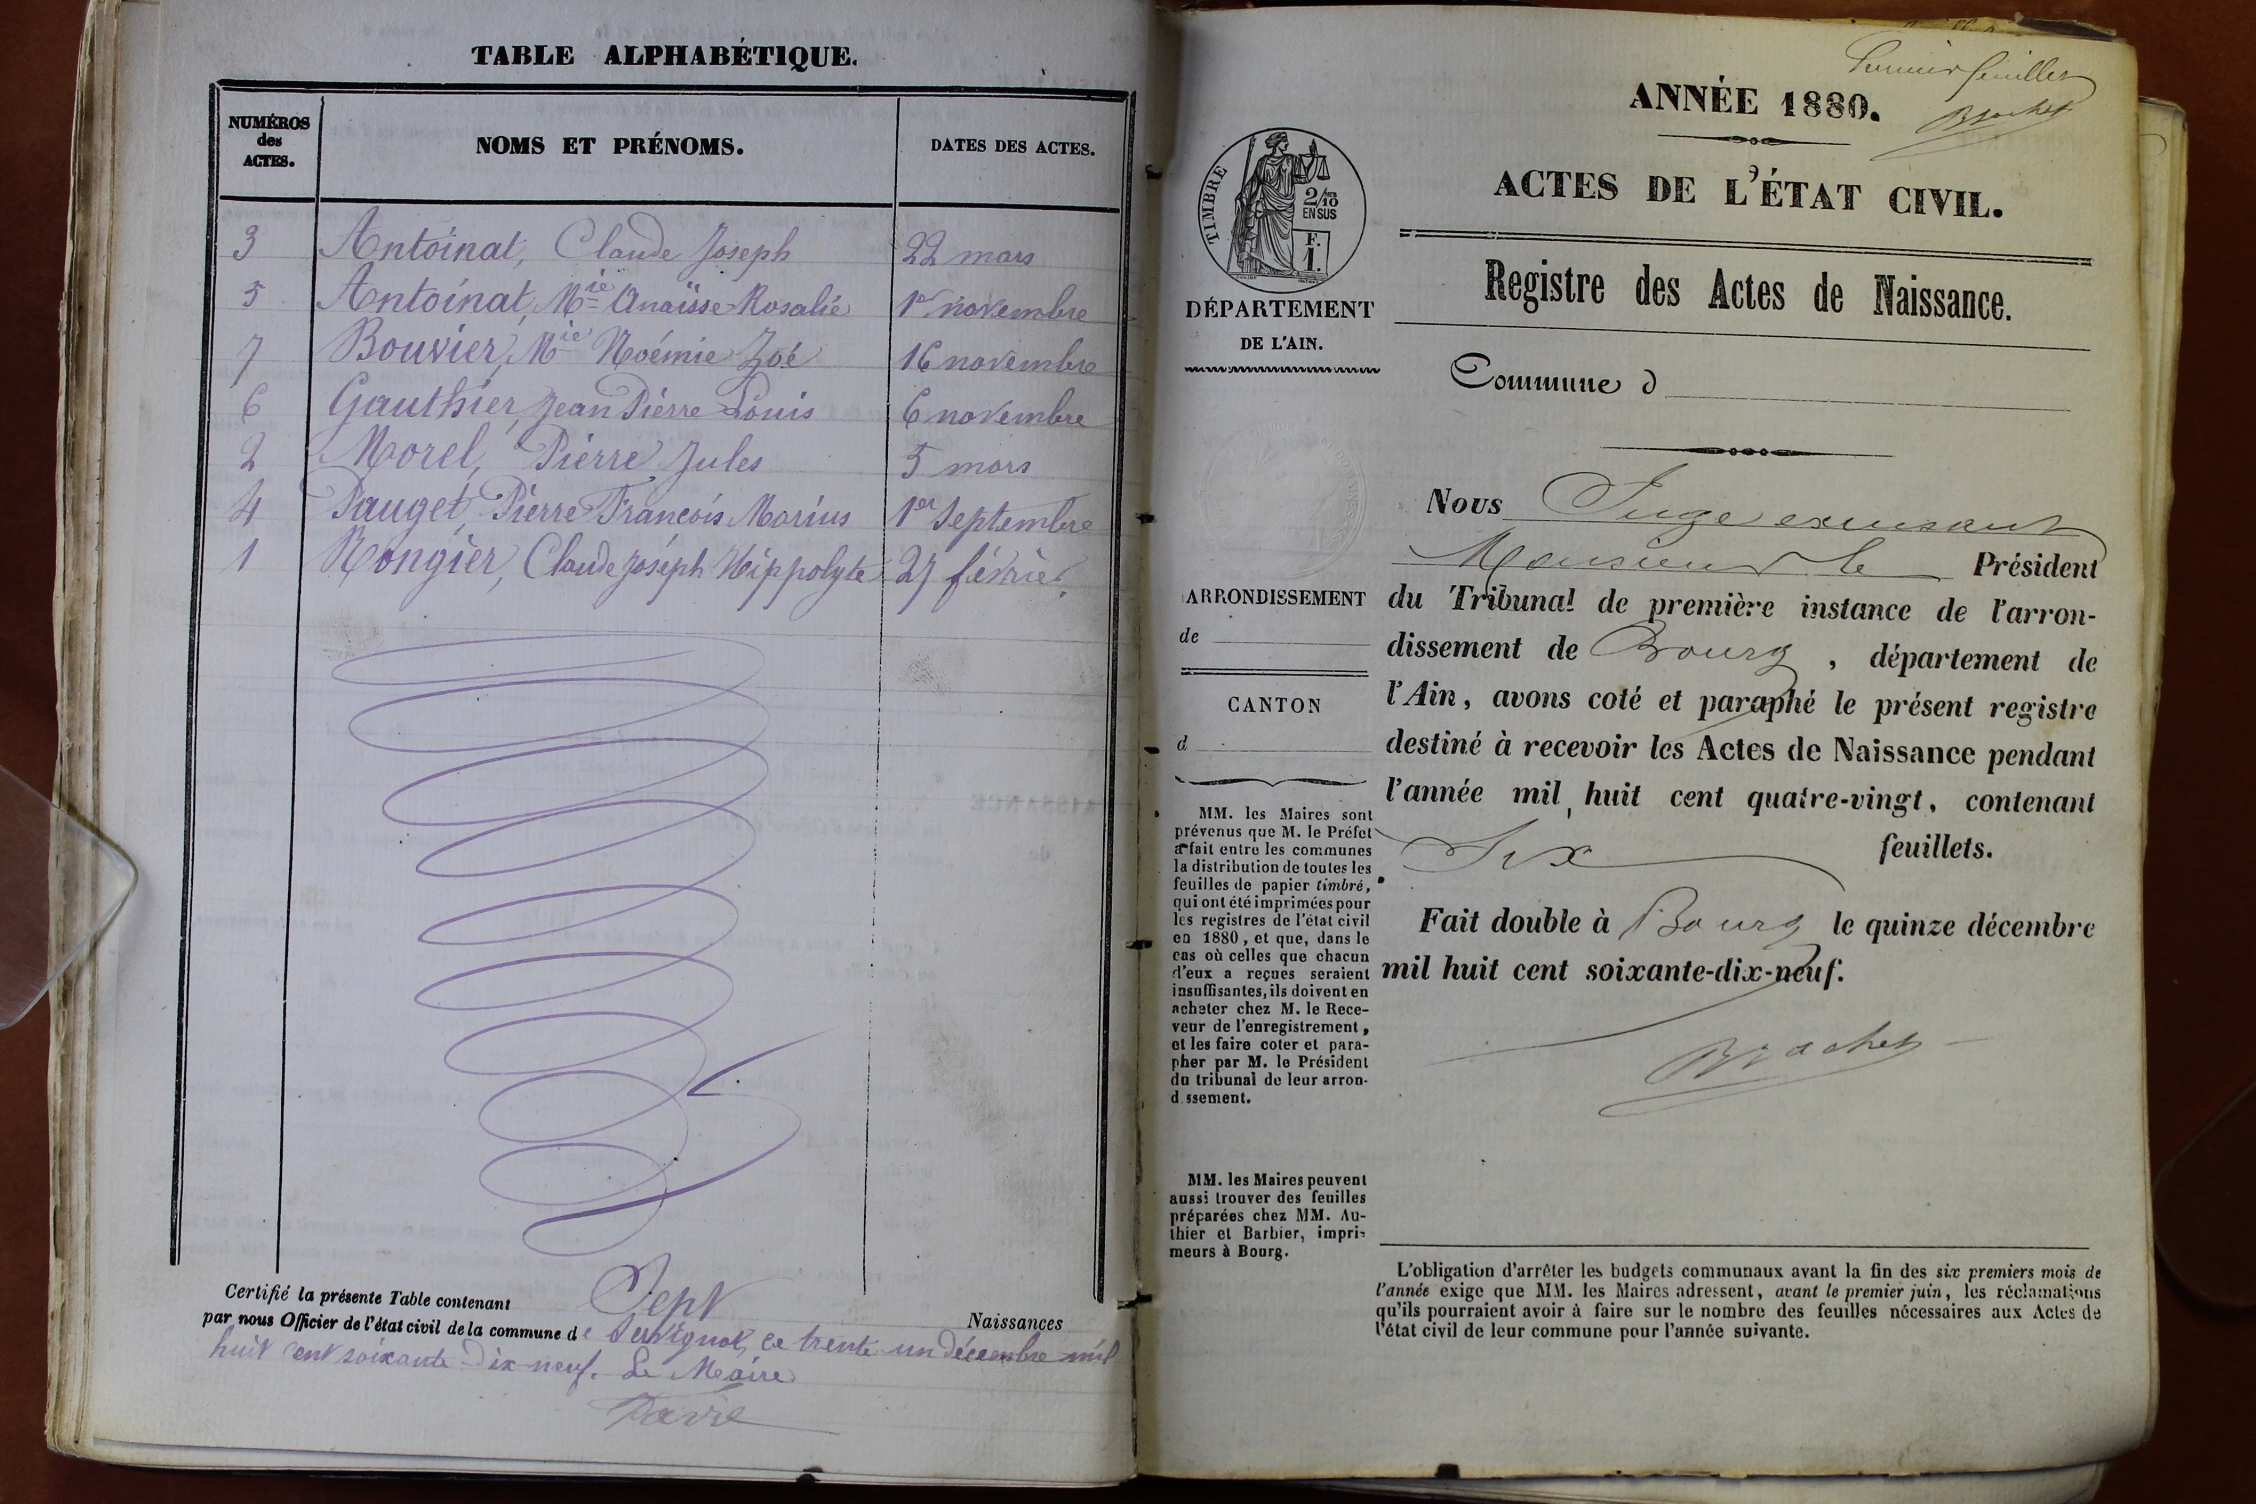 TABLE ALPHABÉTIQUE.
NUMÉROS des ACTES.
NOMS ET PRÉNOMS.
DATES DES ACTES.
3 Antoinat, Claude Joseph 22 mars
5 Antoinat, Mie Anaïsse Rosalie 1er novembre
7 Bouvier, Mie Noémie Zoé 16 novembre
6 Gauthier, Jean Pierre Louis 6 novembre
2 Morel, Pierre Jules 5 mars
4 Pauget, Pierre François Marius 1er Septembre
1 Rongier, Claude Joseph Hippolyte 27 février.
Certifié la présente Table contenant Sept Naissances
par nous Officier de l'état civil de la commune de Servignat, ce trente-un décembre mil
huit cent soixante-dix-neuf. Le Maire
Favre
Premier feuillet
Brachet
ANNÉE 1880.
ACTES DE L'ÉTAT CIVIL.
Registre des Actes de Naissance.
Commune d
TIMBRE
2/10
EN SUS
F.
1.
DÉPARTEMENT
DE L'AIN.
ARRONDISSEMENT
de
CANTON
d
MM. les Maires sont
prévenus que M. le Préfet
a fait entre les communes
la distribution de toutes les
feuilles de papier timbré,
qui ont été imprimées pour
les registres de l'état civil
en 1880, et que, dans le
cas où celles que chacun
d'eux a reçues seraient
insuffisantes, ils doivent en
acheter chez M. le Rece-
veur de l'enregistrement,
et les faire coter et para-
pher par M. le Président
du tribunal de leur arron-
d ssement.
MM. les Maires peuvent
aussi trouver des feuilles
préparées chez MM. Au-
thier et Barbier, impri-
meurs à Bourg.
Nous Juge excusant
Monsieur le Président
du Tribunal de première instance de l'arron-
dissement de Bourg, département de
l'Ain, avons coté et paraphé le présent registre
destiné à recevoir les Actes de Naissance pendant
l'année mil huit cent quatre-vingt, contenant
Six feuillets.
Fait double à Bourg le quinze décembre
mil huit cent soixante-dix-neuf.
Brachet
L'obligation d'arrêter les budgets communaux avant la fin des six premiers mois de
l'année exige que MM. les Maires adressent, avant le premier juin, les réclamations
qu'ils pourraient avoir à faire sur le nombre des feuilles nécessaires aux Actes de
l'état civil de leur commune pour l'année suivante.